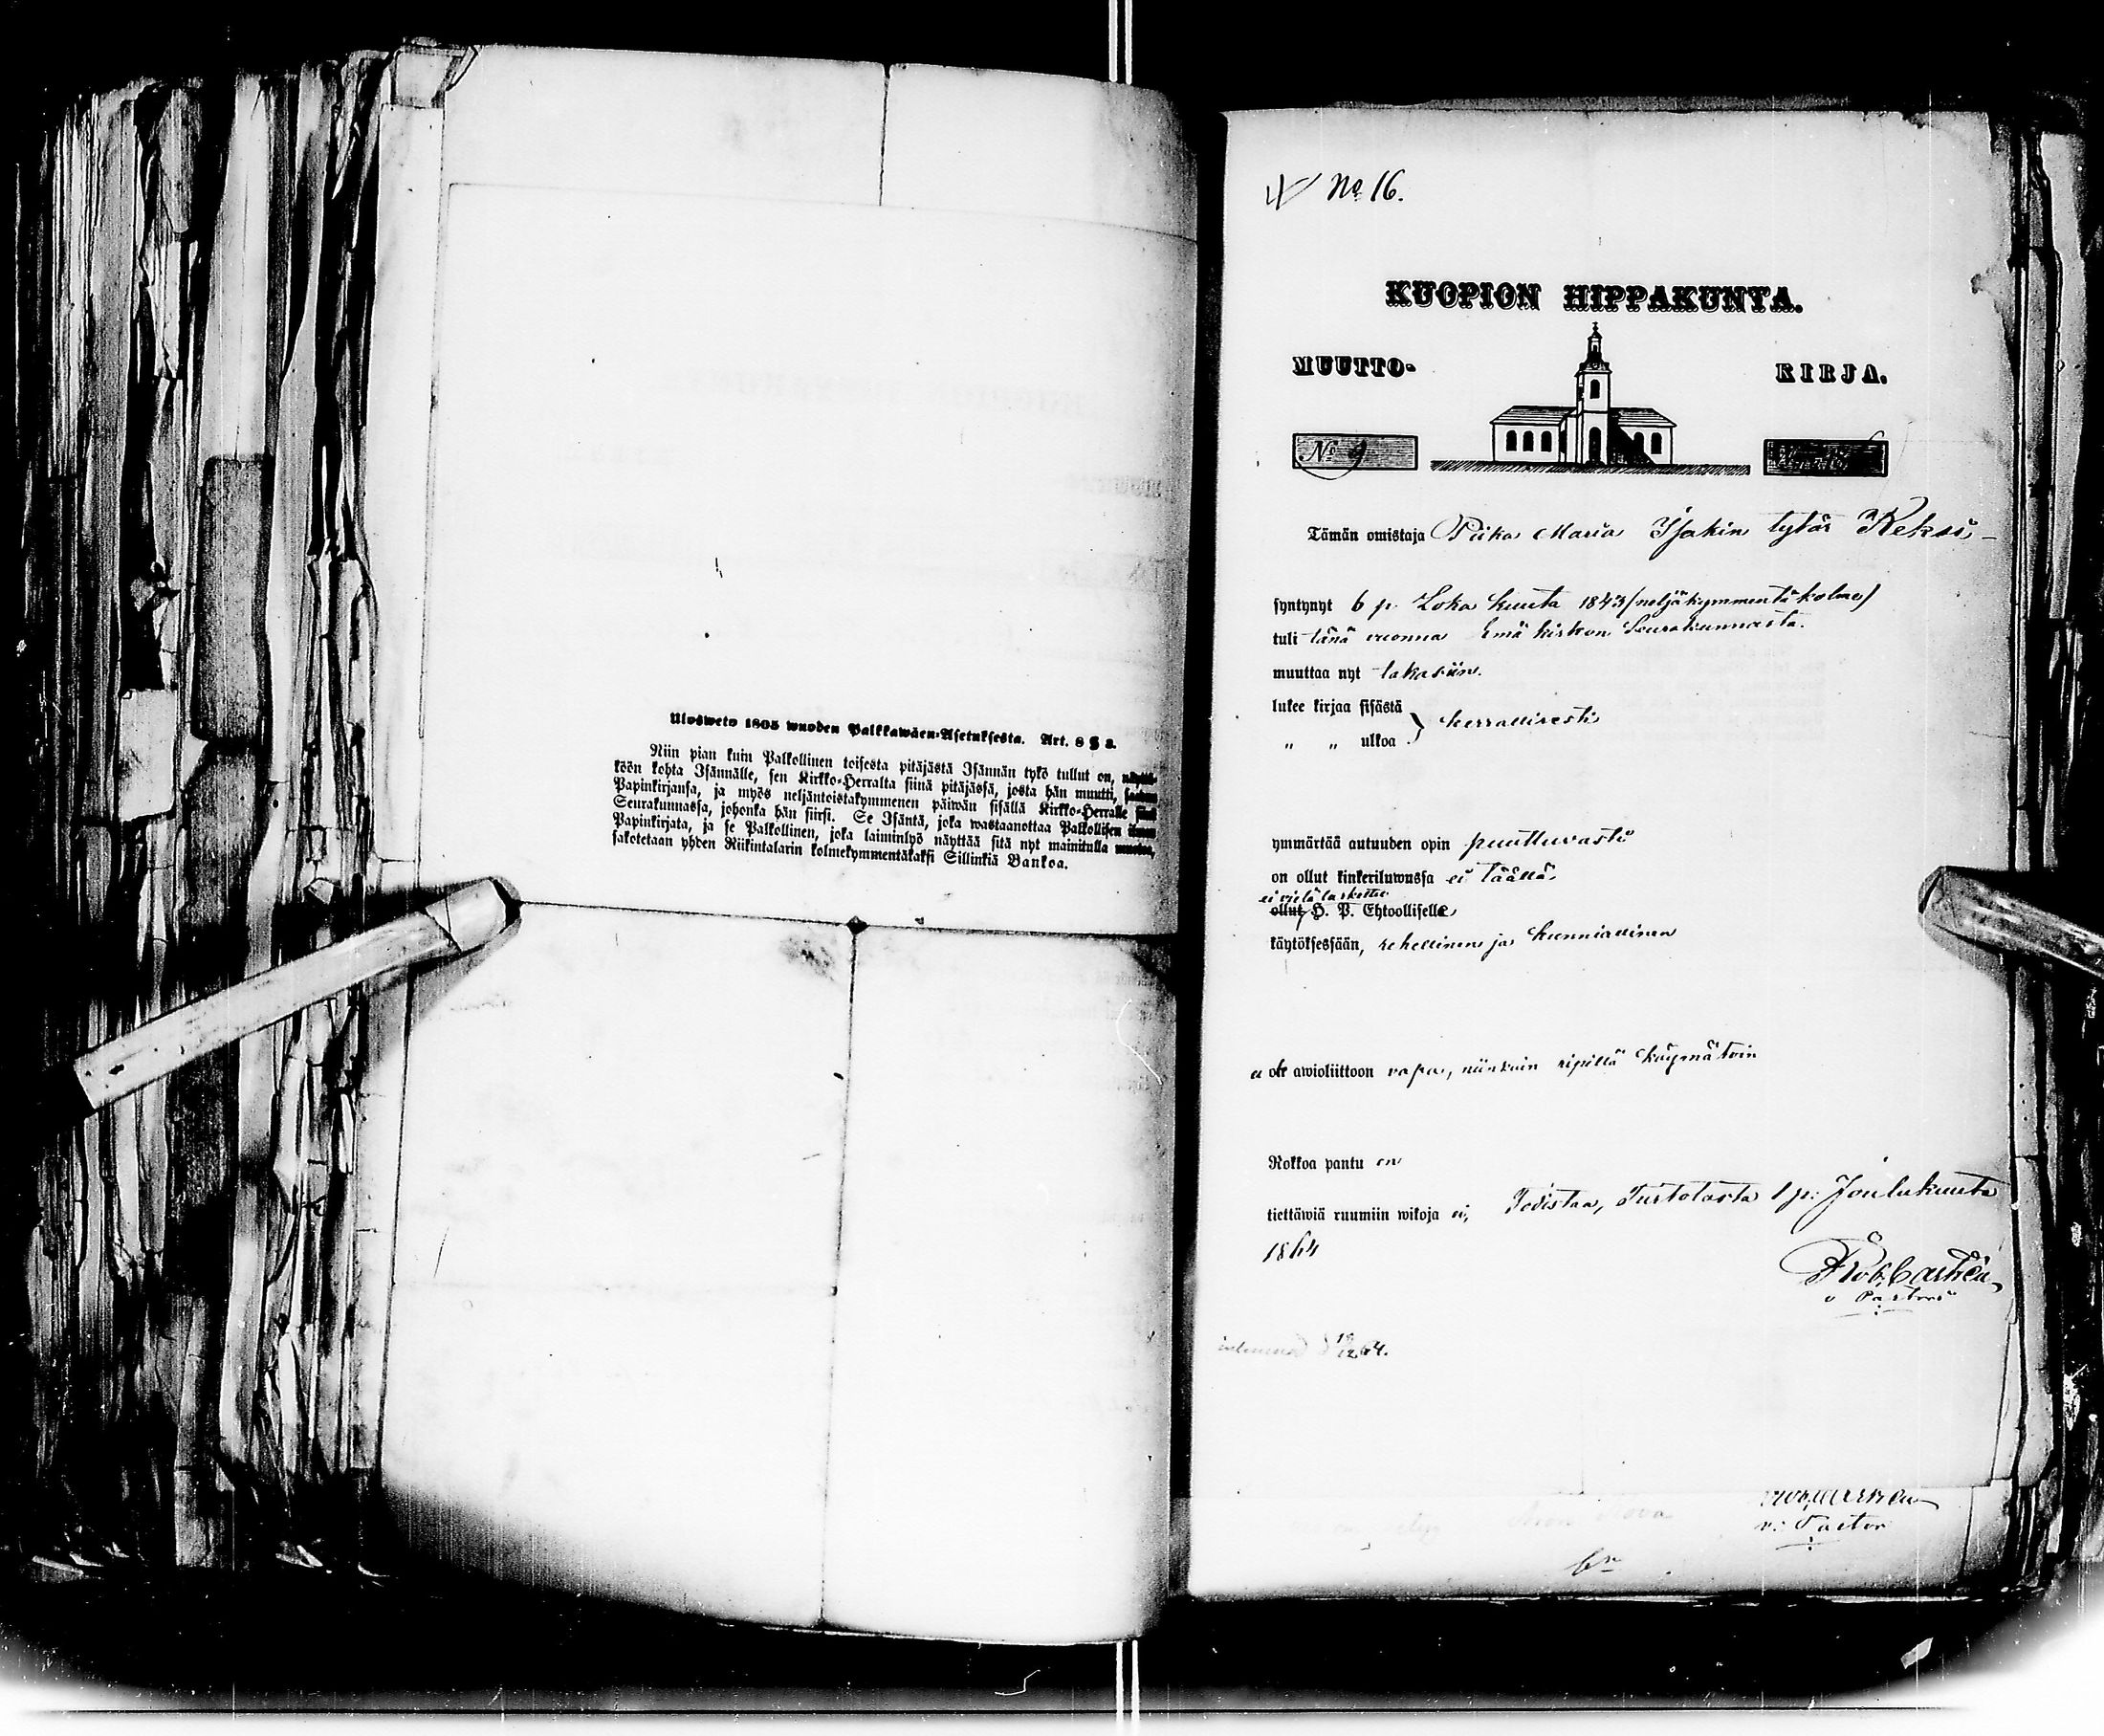 Ulosweto 1805 wuoden Palkkawäen-Asetuksesta. Art. 8 § 3.
Niin pian kuin Palkollinen toisesta pitäjästä Isännän tykö tullut on, näyttä-
köön kohta Isännälle, sen Kirkko-Herralta siinä pitäjässä, josta hän muutti, saadun
Papinkirjansa, ja myös neljäntoistakymmenen päiwän sisällä Kirkko-Herralle siinä
Seurakunnassa, johonka hän siirsi. Se Isäntä, joka wastaanottaa Palkollisen ilman
Papinkirjata, ja se Palkollinen, joka laiminlyö näyttää sitä nyt mainitulla muotoa,
sakotetaan yhden Riikintalarin kolmekymmentäkaksi Sillinkiä Bankoa.
No 16.
KUOPION HIPPAKUNTA.
MUUTTO- KIRJA.
No 9
Tämän omistaja Piika Maria Isakin tytär Keksi
syntynyt 6 p. Loka kuuta 1843 (neljäkymmentä kolme)
tuli tänä vuonna Emä kirkon Seurakunnasta.
muuttaa nyt takasiin.
lukee kirjaa sisästä
„ „ ulkoa } kerrallisesti
ymmärtää autuuden opin puuttuvasti
on ollut kinkeriluwussa ei täällä
ei vielä laskettu
ollut H. P. Ehtoollisella
käytöksessään, rehellinen ja kunniallinen
ei ole awioliittoon vapa, niinkuin ripillä käymätöin
Rokkoa pantu on
tiettäwiä ruumiin wikoja ei, Todistaa, 1 p. Joulukuuta
1864
v Pastori
inlemnad d 18/12 64.
v. Pastor